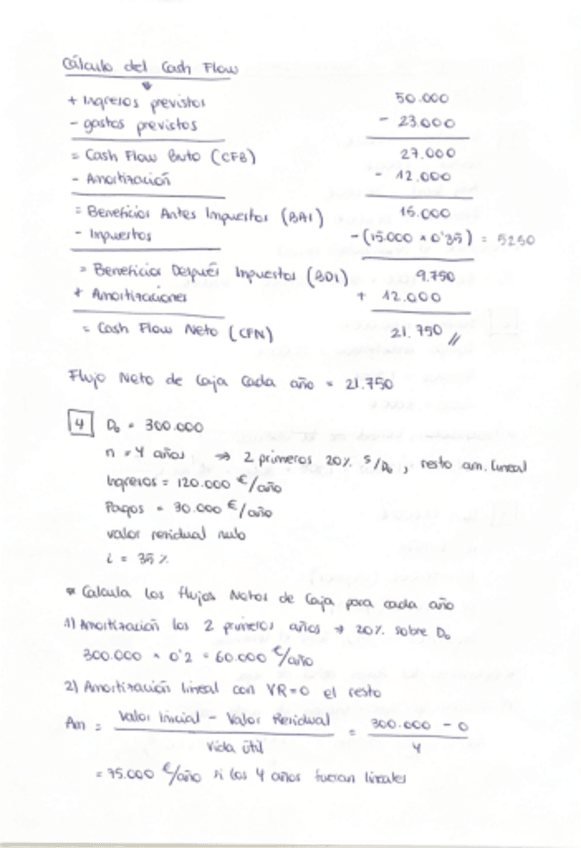 Cálculo del Cash Flow
+ Ingresos previstos 50.000
- gastos previstos - 23.000
= Cash Flow Buto (CFB) 27.000
- Amortización - 12.000
= Beneficios Antes Impuestos (BAI) 15.000
- Impuestos -(15.000 × 0'35) = 5250
= Beneficios Después Impuestos (BDI) 9.750
+ Amortizaciones + 12.000
= Cash Flow Neto (CFN) 21.750 //
Flujo Neto de Caja Cada año = 21.750
4 D₀ = 300.000
n = 4 años → 2 primeros 20% s/D₀, resto am. lineal
Ingresos = 120.000 €/año
Pagos = 30.000 €/año
valor residual nulo
i = 35%
* Calcula los flujos Netos de Caja para cada año
1) Amortización los 2 primeros años → 20% sobre D₀
300.000 × 0'2 = 60.000 €/año
2) Amortización lineal con VR=0 el resto
Am = Valor Inicial - Valor Residual / Vida útil = 300.000 - 0 / 4
= 75.000 €/año si los 4 años fueran lineales